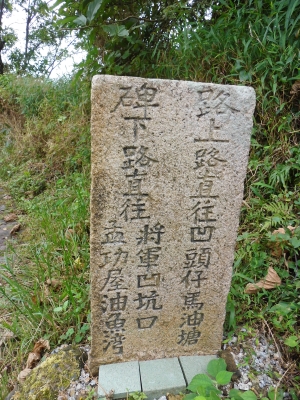 路上路直往凹頭仔馬油塘
碑下路直往將軍凹坑口
孟功屋油魚湾